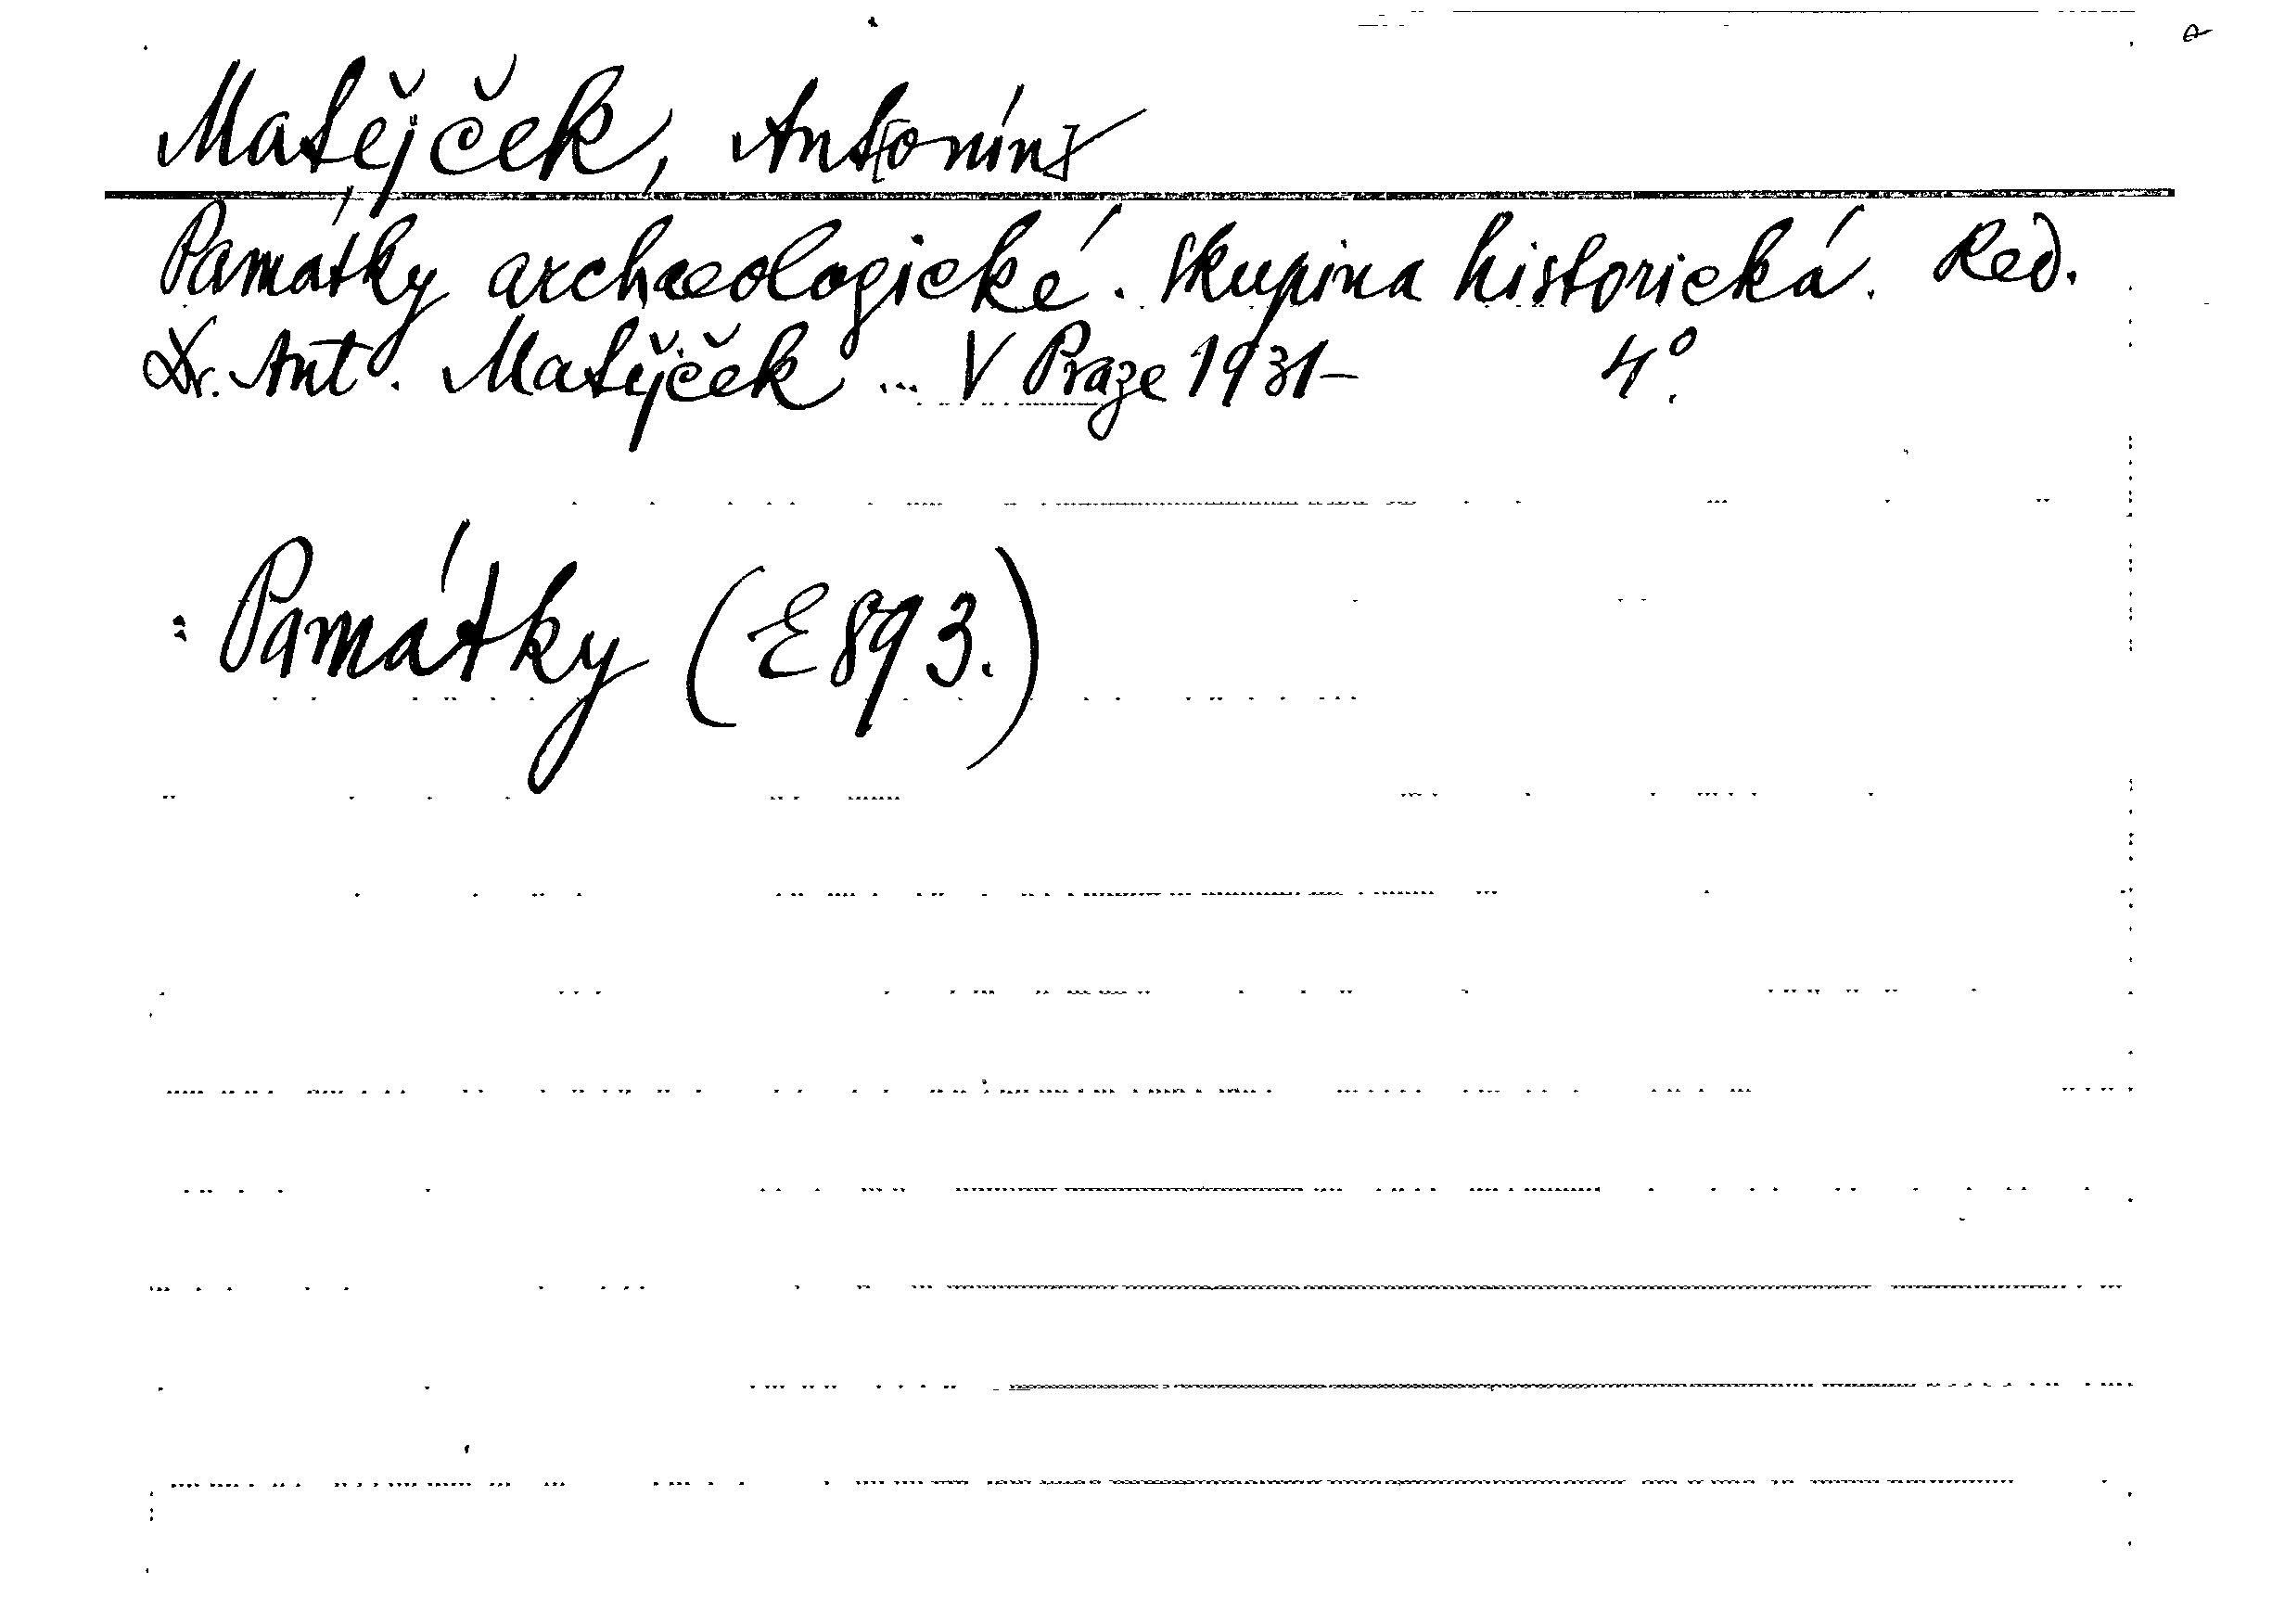 Matějček, Ant[onín]
Památky archaeologické. Skupina historická. Red.
Dr. Ant. Matějček ... V Praze 1931– 4°.
: Památky (E 893.)